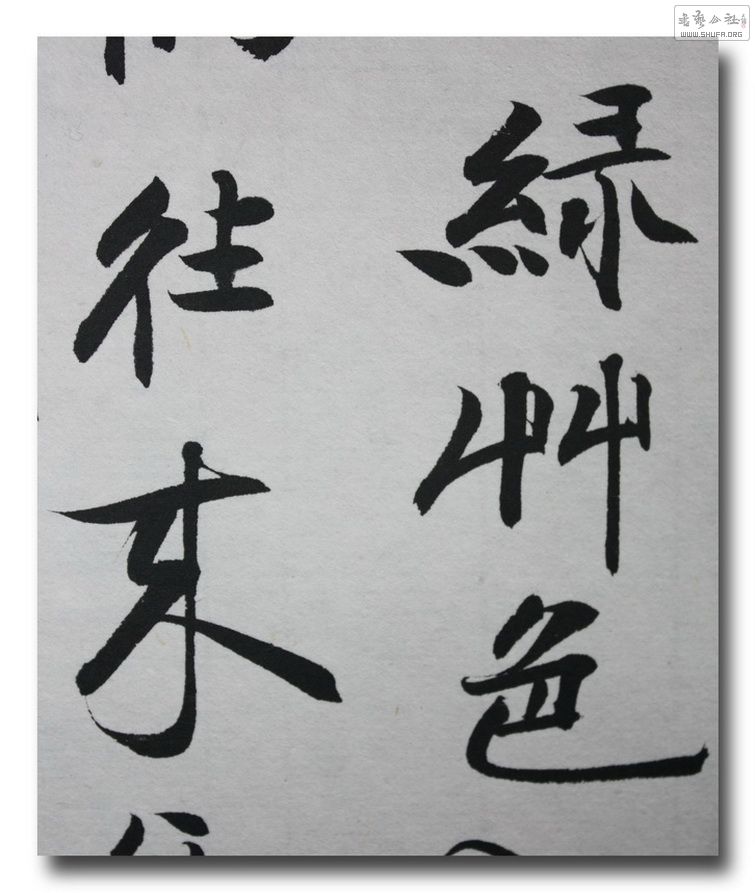 綠艸色
往来
書藝公社
WWW.SHUFA.ORG